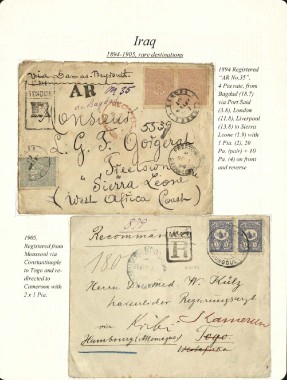 Iraq
1894-1905, rare destinations
via Damas-Beyrouth
AR
No 35
Monsieur
5539
L. G. F. Goigerat
Freetown
"Sierra Leone"
(West Africa Coast)
1894 Registered
"AR No.35",
4 Pia rate, from
Bagdad (18.7)
via Port Said
(3.8), London
(11.8), Liverpool
(13.8) to Sierra
Leone (1.9) with
1 Pia. (2), 20
Pa. (pair) + 10
Pa. (4) on front
and reverse
1905,
Registered from
Mausoul via
Constantinople
to Togo and re-
directed to
Cameroon with
2 x 1 Pia.
Recommandé
R
180
Herrn Dr. med. W. Külz
kaiserlicher Regierungsarzt
Kribi Kamerun
Togo
Hambourg (Allemagne) Westafrika